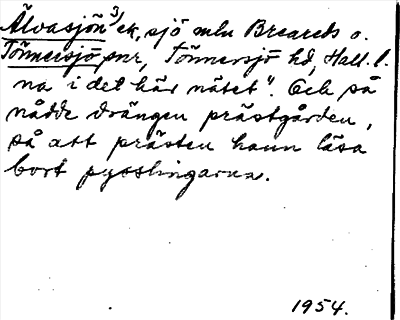 Älvasjön 3/ ek, sjö mlu Breareds o.
Tönnersjö snr, Tönnersjö hd, Hall. l.
na i det här nätet". Och så
nådde drängen prästgården,
så att prästen hann läsa
bort pysslingarna.
1954.